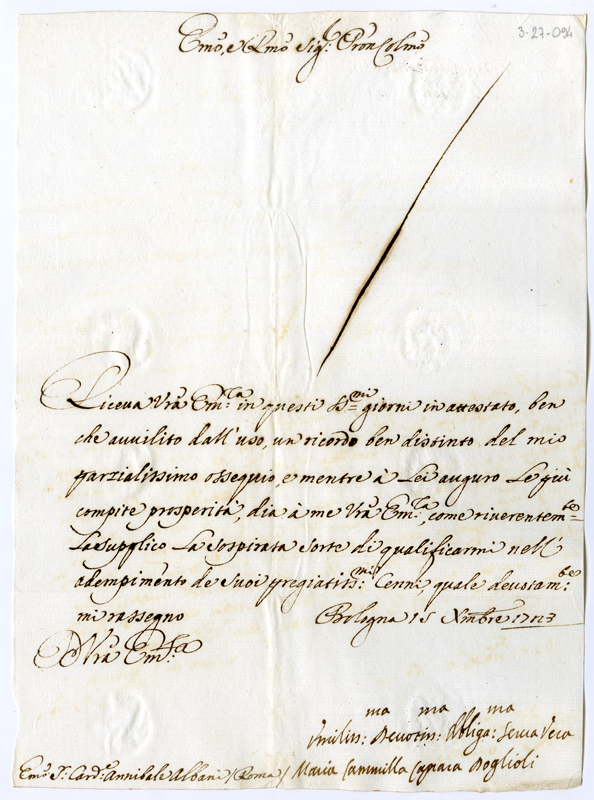 3-27-094
Emo, e Rmo Sig:r Pron Colmo
Riceva Vra Em:za in questi S:mi giorni in attestato, ben
che avvilito dall'uso, un ricordo ben distinto del mio
parzialissimo ossequio, e mentre à Lei auguro le più
compite prosperità, dia à me Vra Em:za, come riverentem:te
La supplico La sospirata sorte di qualificarmi nell'
adempimento de suoi pregiatiss:mi Cenni, quale devotam:te
mi rassegno
Bologna 15 Xmbre 1723
D Vra Em:za
Umiliss:ma Devotiss:ma Obbliga:ma Serva Vera
Emo S:r Card:e Annibale Albani / Roma /
Maria Cammilla Caprara Boglioli